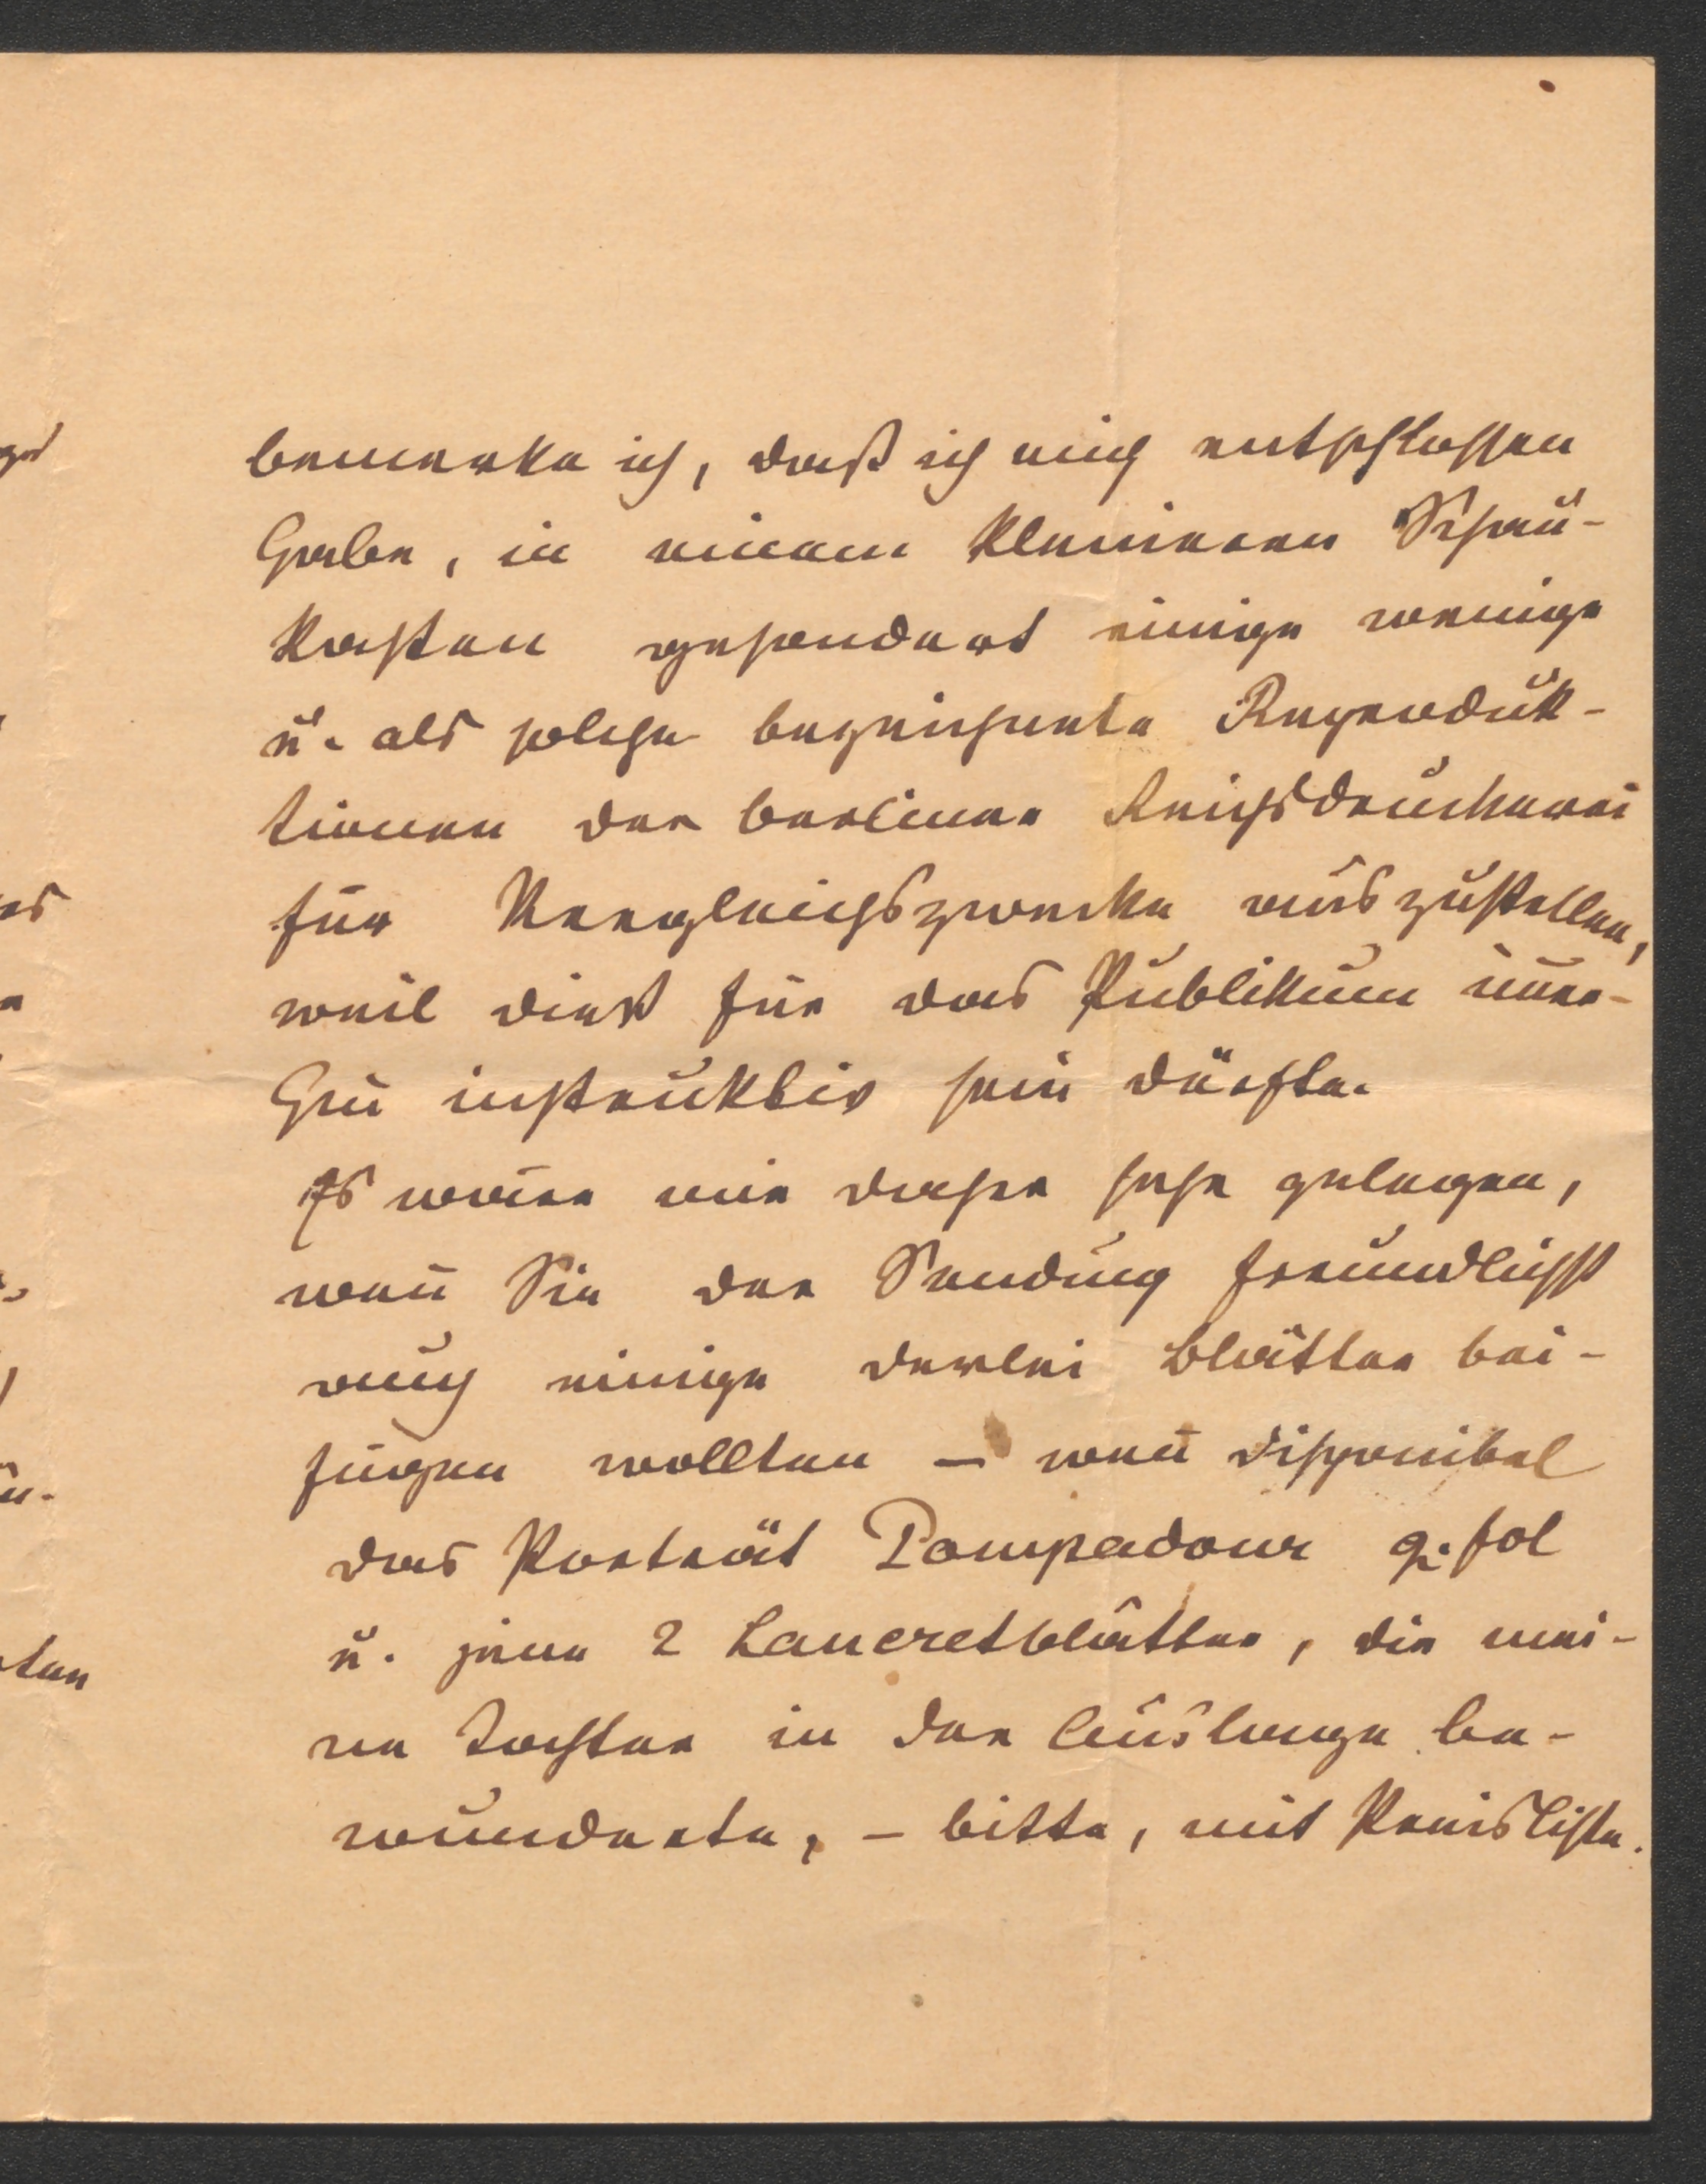 bemerke ich, daß ich mich entschlossen
habe, in einem kleineren Schau-
kasten gesondert einige wenige
u. als solche bezeichnete Reproduk-
tionen der berliner Reichsdruckerei
für Vergleichszwecke auszustellen,
weil dies für das Publikum im̄er-
hin instruktiv sein dürfte.
Es wäre mir daher sehr gelegen,
wen̄ Sie der Sendung freundlichst
auch einige derlei Blätter bei-
fügen wollten – wen̄ disponibel
das Porträt Pompadour q. fol
u. jene 2 Lancretblätter, die mei-
ne Tochter in der Auslage be-
wunderte, – bitte, mit Preisliste.